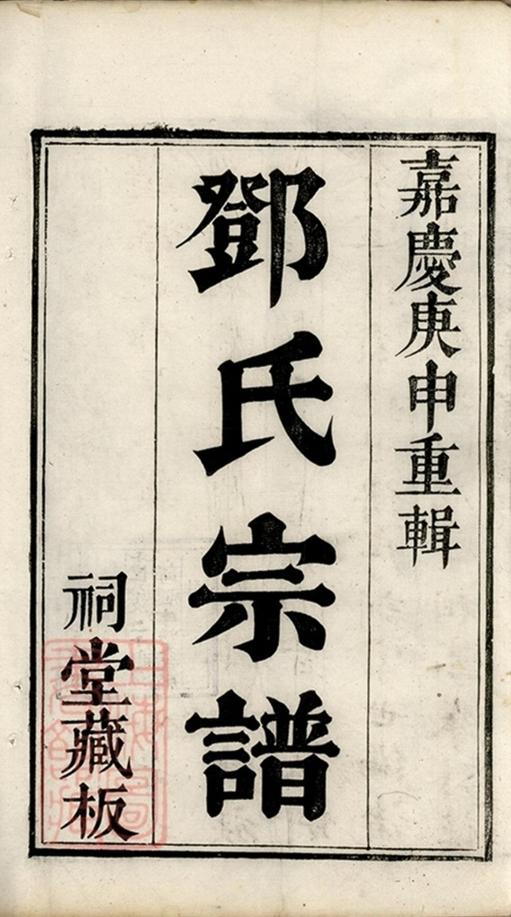 嘉慶庚申重輯
鄧氏宗譜
祠堂藏板